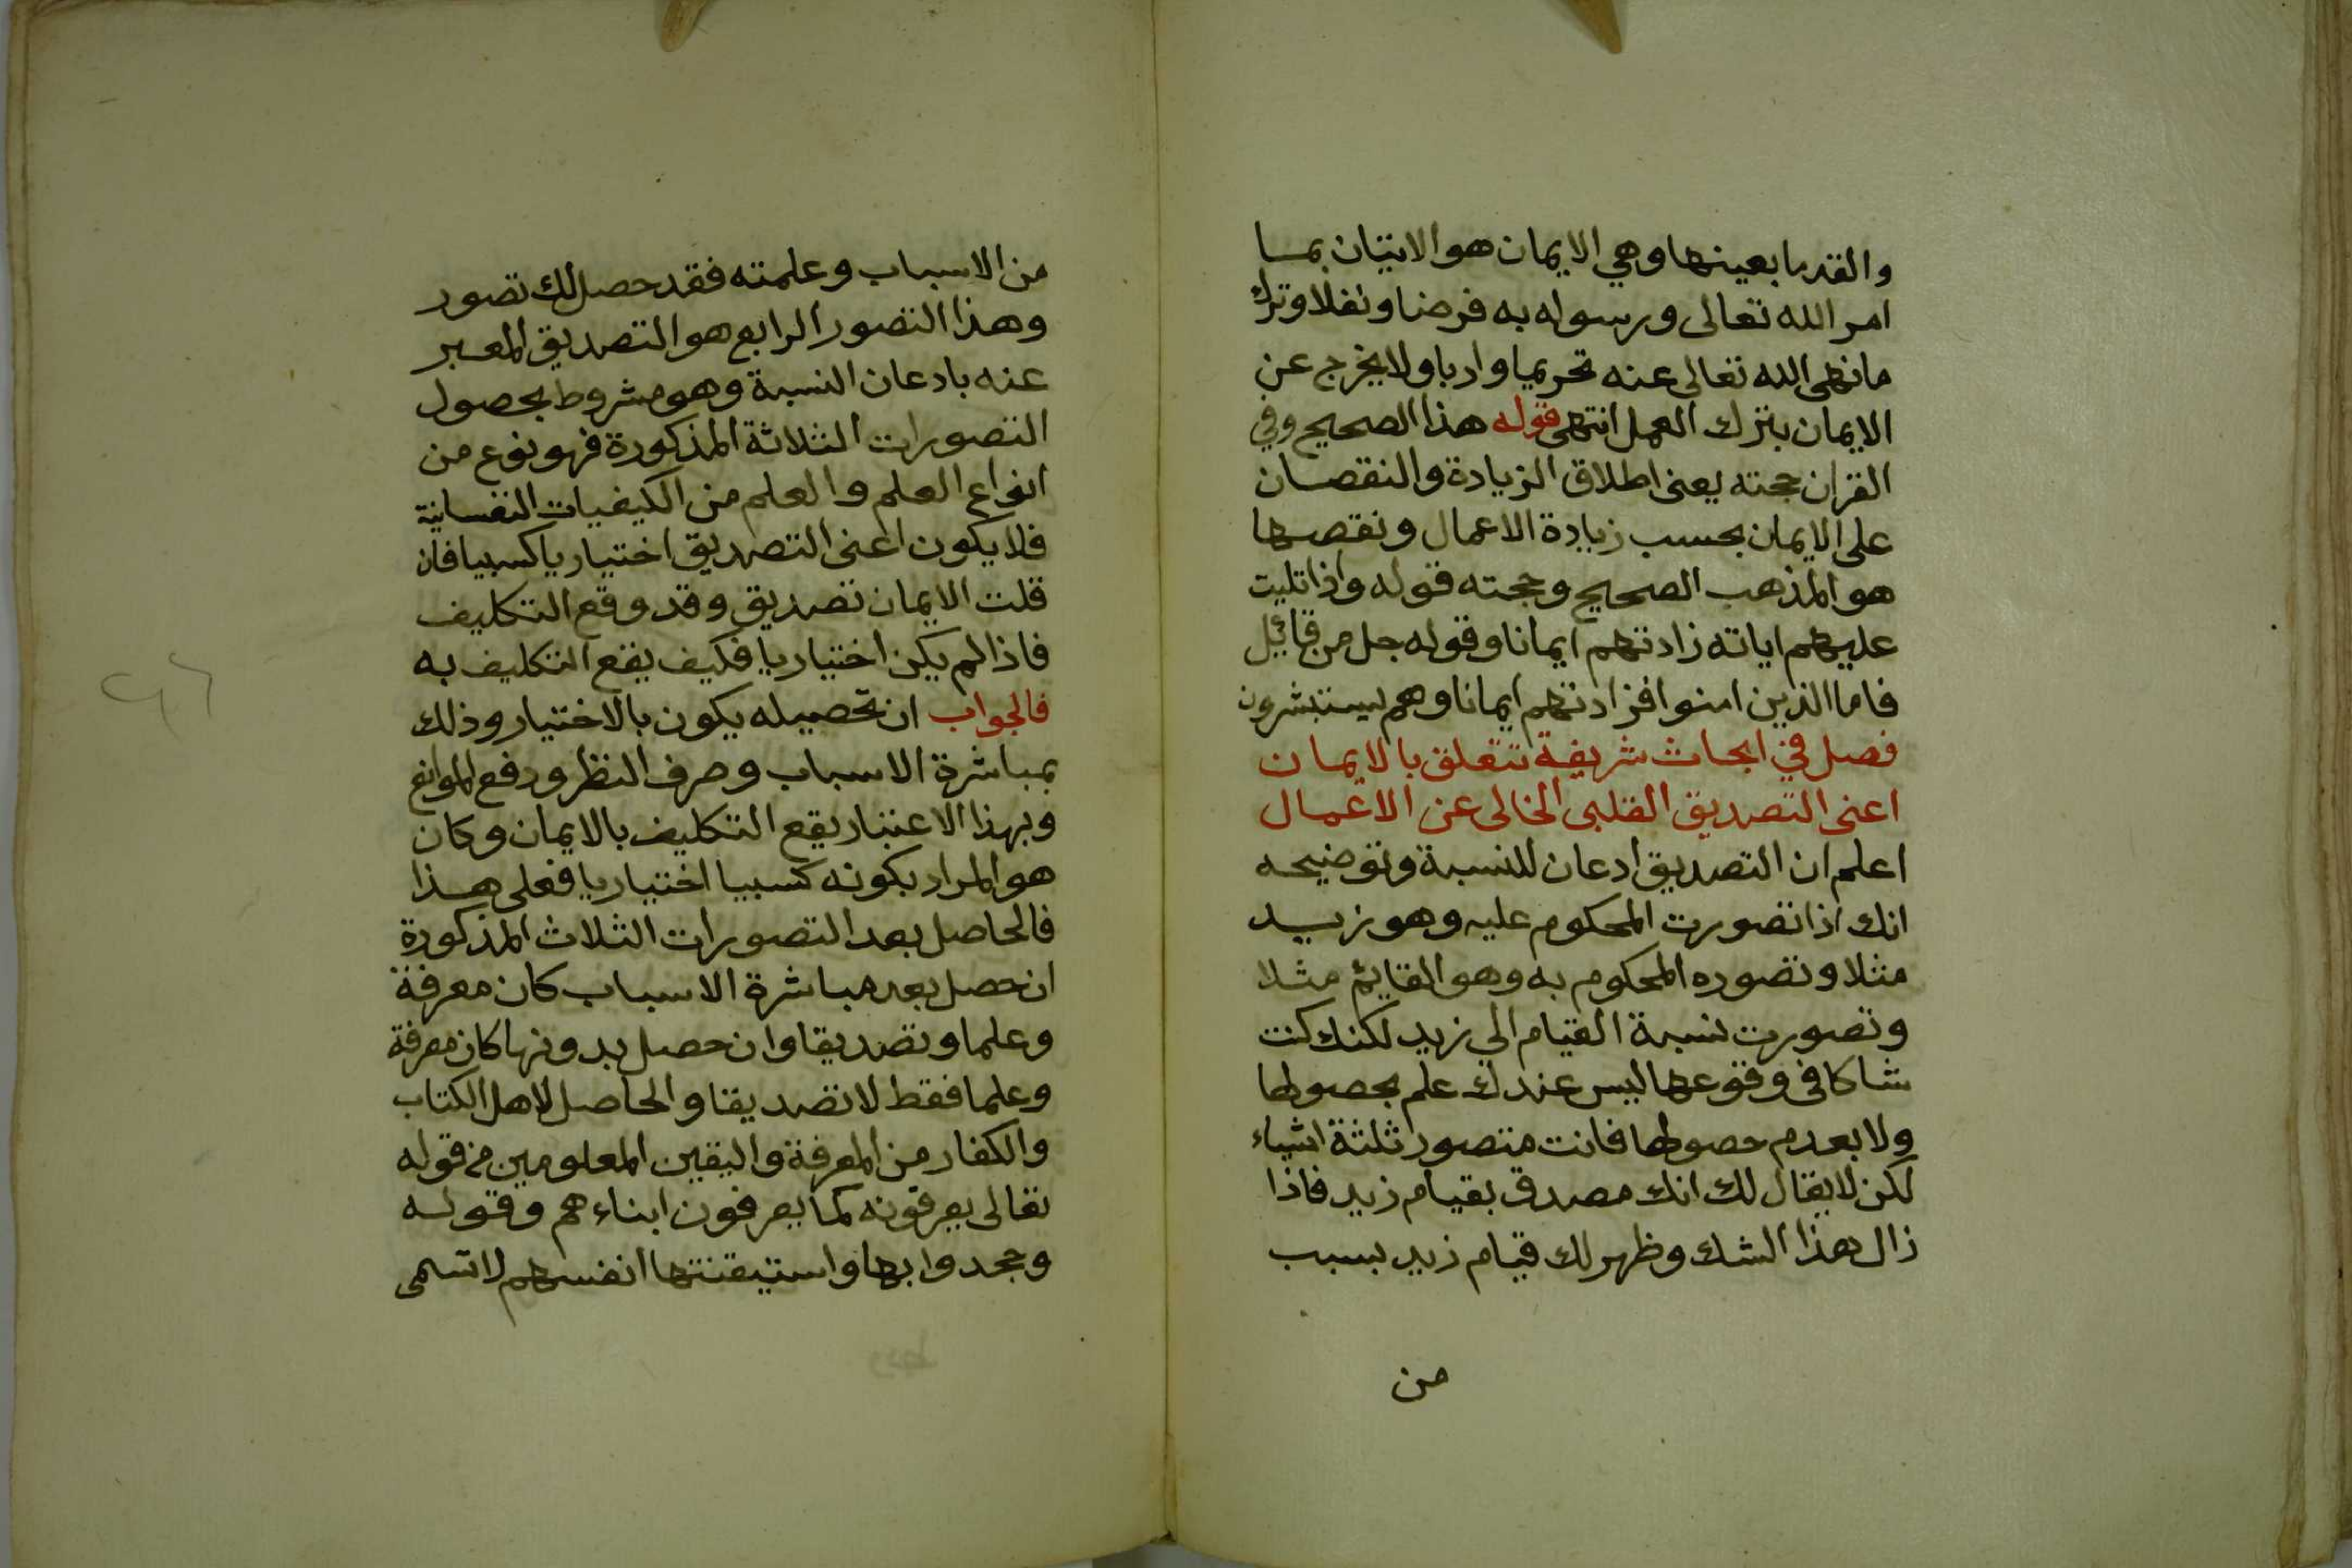 والقدما بعينها وهي الايمان هو الاتيان بما
امر الله تعالى ورسوله به فرضا ونفلا وترك
ما نهى الله تعالى عنه تحريما وادبا ولا يخرج عن
الايمان بترك العمل انتهى قوله هذا الصحيح وفي
القران حجته يعنى اطلاق الزيادة والنقصان
على الايمان بحسب زيادة الاعمال ونقصها
هو المذهب الصحيح وحجته قوله واذا تليت
عليهم اياته زادتهم ايمانا وقوله جل من قائل
فاما الذين امنوا فزادتهم ايمانا وهم يستبشرون
فصل في ابحاث شريفة تتعلق بالايمان
اعنى التصديق القلبى الخالى عن الاعمال
اعلم ان التصديق ادعان للنسبة وتوضيحه
انك اذا تصورت المحكوم عليه وهو زيد
مثلا وتصوره المحكوم به وهو القايم مثلا
وتصورت نسبة القيام الى زيد لكنك كنت
شاكا فى وقوعها ليس عندك علم بحصولها
ولا بعدم حصولها فانت متصور ثلثة اشياء
لكن لا يقال لك انك مصدق بقيام زيد فاذا
زال هذا الشك وظهر لك قيام زيد بسبب
من
من الاسباب وعلمته فقد حصل لك تصور
وهذا التصور الرابع هو التصديق المعبر
عنه بادعان النسبة وهو مشروط بحصول
التصورات الثلاثة المذكورة فهو نوع من
انواع العلم والعلم من الكيفيات النفسانية
فلا يكون اعنى التصديق اختياريا كسبيا فان
قلت الايمان تصديق وقد وقع التكليف
فاذا لم يكن اختياريا فكيف يقع التكليف به
فالجواب ان تحصيله يكون بالاختيار وذلك
بمباشرة الاسباب وصرف النظر ودفع الموانع
وبهذا الاعتبار يقع التكليف بالايمان وكان
هو المراد بكونه كسبيا اختياريا فعلى هذا
فالحاصل بعد التصورات الثلاث المذكورة
ان حصل بعد مباشرة الاسباب كان معرفة
وعلما وتصديقا وان حصل بدونها كان معرفة
وعلما فقط لا تصديقا والحاصل لاهل الكتاب
والكفار من المعرفة واليقين المعلومين من قوله
تعالى يعرفونه كما يعرفون ابناءهم وقوله
وجحدوا بها واستيقنتها انفسهم لا تسمى